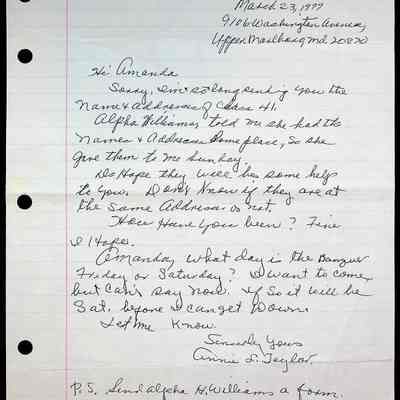 March 23, 1977
9106 Washington Avenue,
Upper Marlboro, Md 20870
Hi Amanda
Sorry, I'm so long sending you the
Name & Addresses of Class 41.
Alpha Williams, told me she had the
Names & Addresses Some place, So she
gave them to me Sunday.
Do Hope they will be some help
to you. Don't Know if they are at
the Same Address or not.
How Have you been? Fine
I Hope.
Amanda, what day is the Banquet
Friday or Saturday? I want to come,
but can't say now. If So it will be
Sat. before I can get Down.
Let me Know.
Sincerely Yours
Annie L. Taylor.
P.S. Send alpha H. Williams a form.